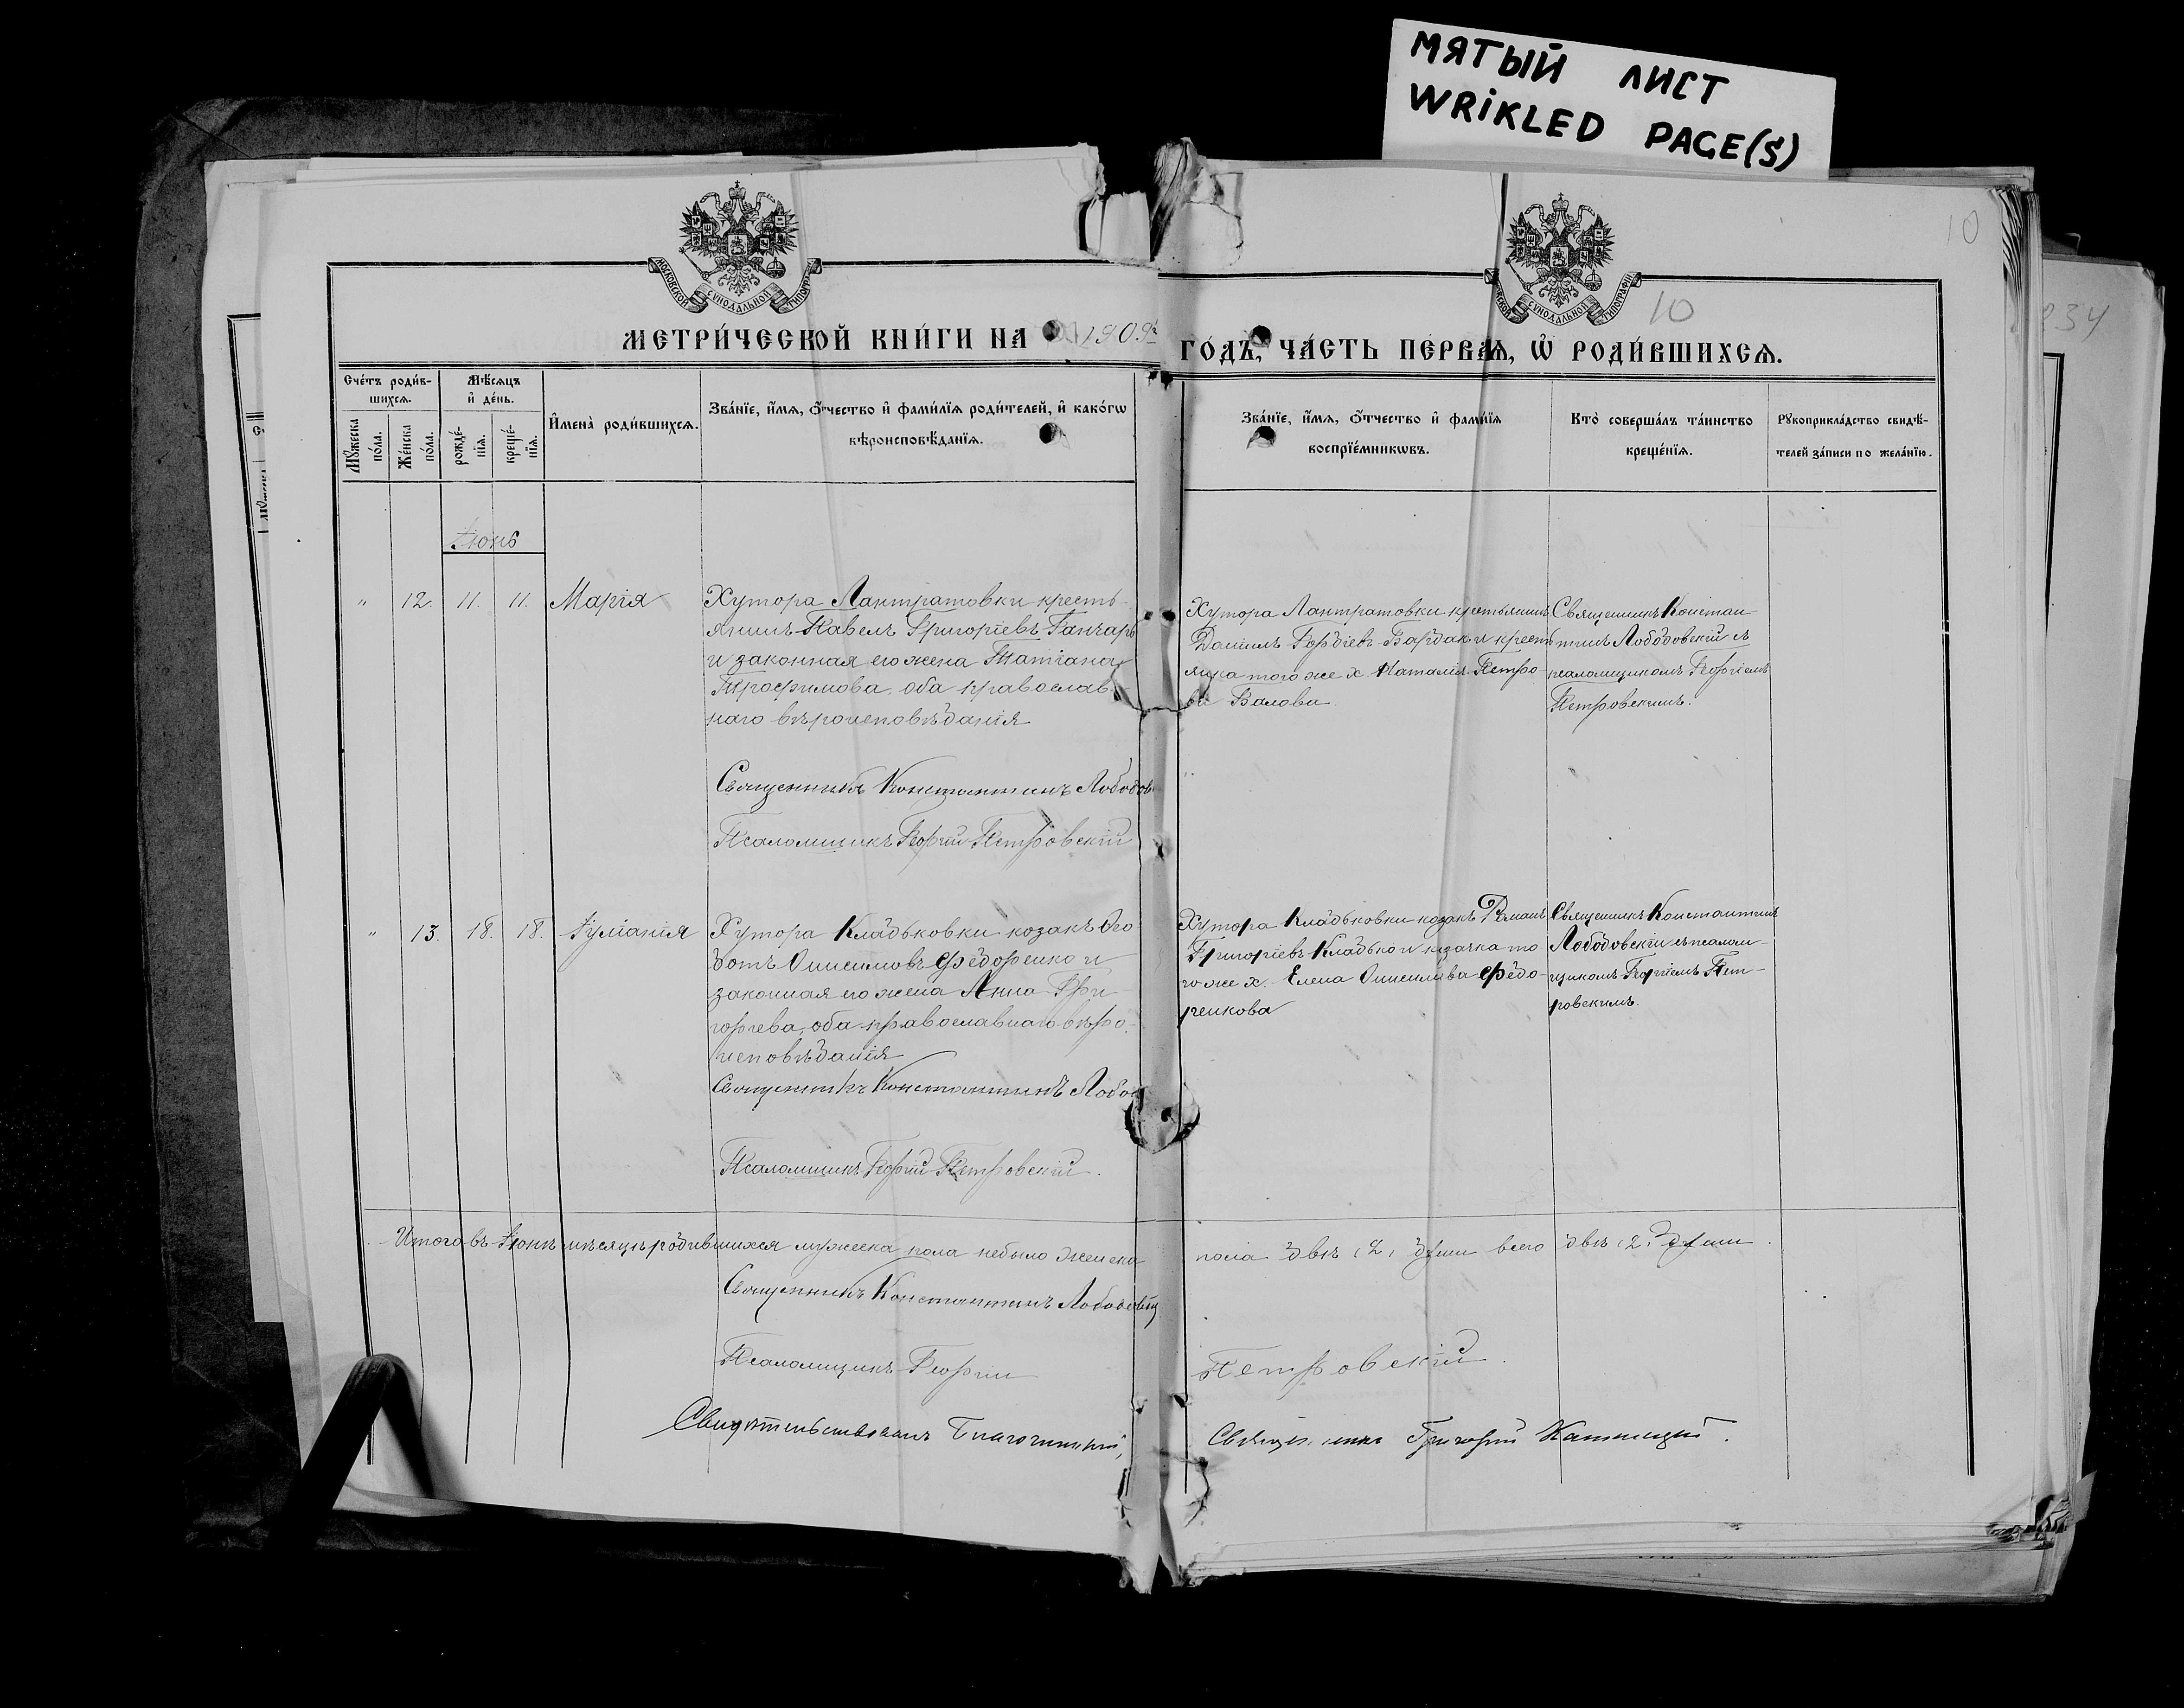 МЯТЫЙ ЛИСТ
WRIKLED PAGE(S)
10
234
МОСКОВСКОЙ СѴНОДАЛЬНОЙ ТИПОГРАФІИ
СѴНОДАЛЬНОЙ ТИПОГРАФІИ
10
МЕТРИ́ЧЕСКОЙ КНИ́ГИ НА 1909
ГО́ДЪ, ЧА́СТЬ ПЕ́РВАЯ, Ѽ РОДИ́ВШИХСЯ.
Сче́тъ роди́в-
шихся.
Мѣ́сяцъ
и҆ де́нь.
Мꙋ́жеска по́ла.
Же́нска по́ла.
рожде́-
нїя.
креще́-
нїя.
И҆мена̀ роди́вшихся.
Зва́нїе, и҆́мя, ѻ҆́тчество и҆ фами́лїя роди́телей, и҆ како́гѡ
вѣроисповѣ́данїя.
Зва́нїе, и҆́мя, ѻ҆́тчество и҆ фами́лїя
воспрїе́мникѡвъ.
Кто̀ соверша́лъ та́инство
креще́нїя.
Рꙋкоприкла́дство свидѣ́-
телей за́писи по жела́нїю.
Іюнь
" 12. 11. 11. Марія
Хутора Лантратовки кресть-
янинъ Павелъ Григоріевъ Ганчаръ
и законная его жена Татіана
Трофимова, оба православ
наго вѣроисповѣданія
Священникъ Константинъ Лободов
Псаломщикъ Георгій Петровскій
Хутора Лантратовки крестьянинъ
Даніилъ Гордіевъ Бардак и кресть
янка того же х. Наталія Петро-
ва Валова
Священникъ Констан
тинъ Лободовскій съ
псаломщикомъ Георгіемъ
Петровскимъ.
" 13. 18. 18. Іуліанія
Хутора Кладьковки козакъ Ѳео
дотъ Онисимовъ Федоренко и
законная его жена Анна Гри
горіева, оба православнаго вѣро-
исповѣданія
Священникъ Константинъ Лобод
Псаломщикъ Георгій Петровскій.
Хутора Кладьковки козакъ Романъ
Григоріевъ Кладько и козачка то
го же х. Елена Онисимова Федо-
ренкова
Священникъ Константинъ
Лободовскій съ псалом-
щикомъ Георгіемъ Пет-
ровскимъ.
Итого въ Іюнѣ мѣсяцѣ родившихся мужеска пола небыло женска
пола двѣ (2) души всего двѣ (2) души.
Священникъ Константинъ Лободовскій
Псаломщикъ Георгій
Петровскій.
Свидѣтельствовалъ Благочинный,
Священникъ Григорій